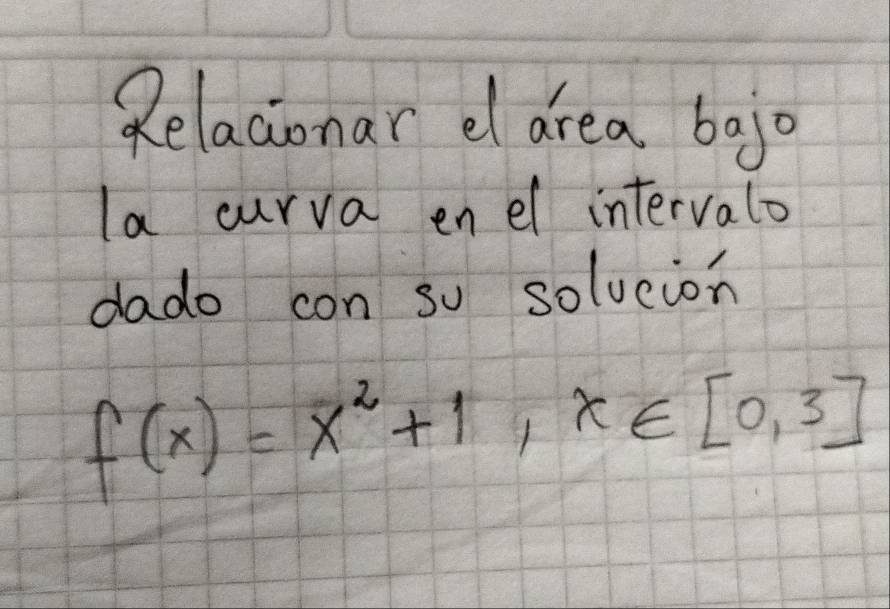 Relacionar el área bajo
la curva en el intervalo
dado con su solución
f(x) = x² + 1 , x ∈ [0,3]